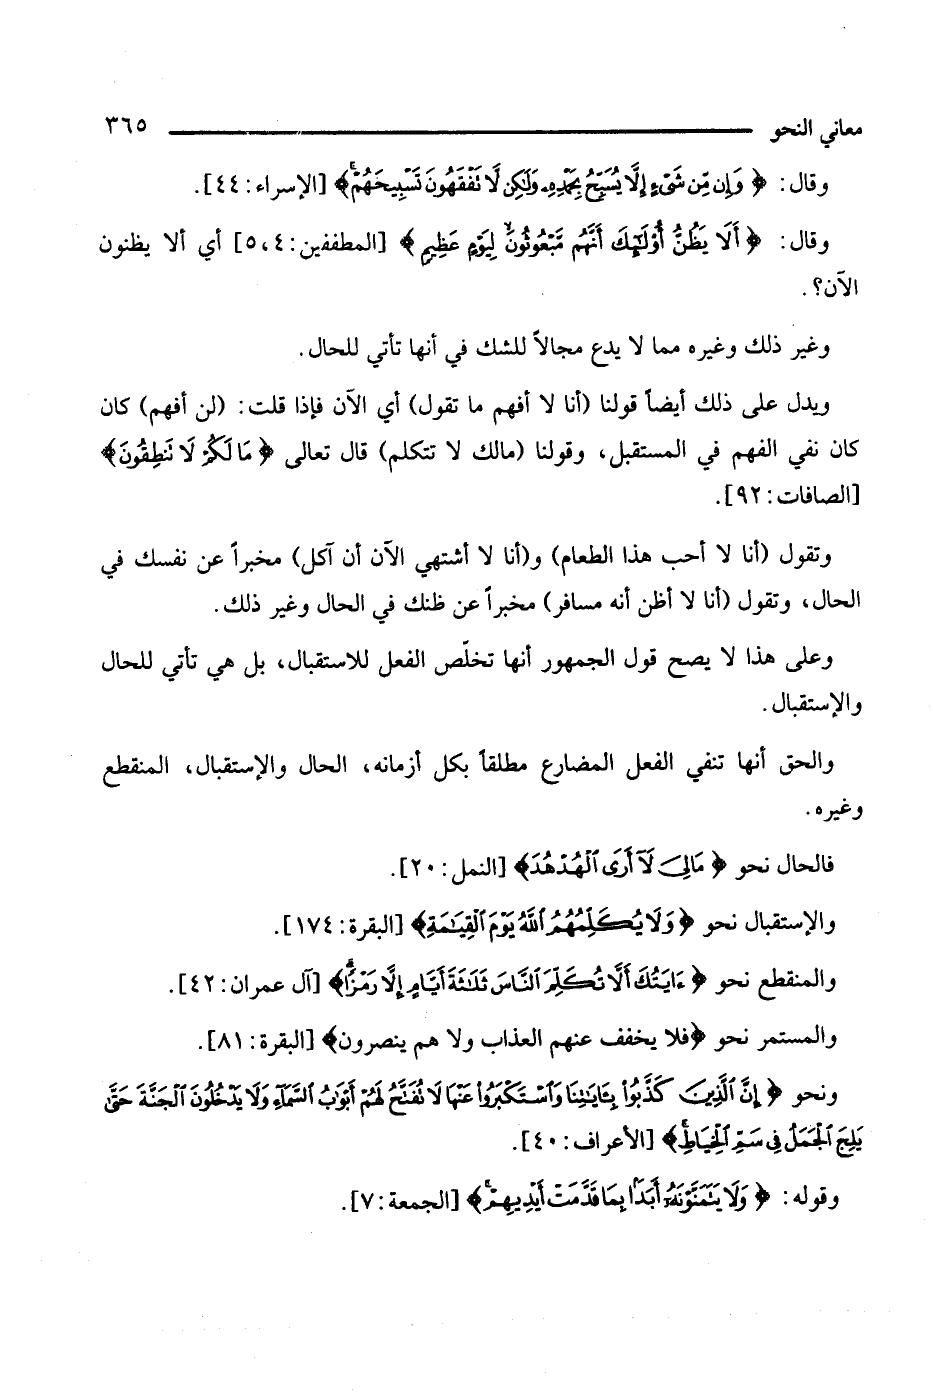 معاني النحو ٣٦٥
وقال: ﴿ وَإِن مِّن شَىْءٍ إِلَّا يُسَبِّحُ بِحَمْدِهِۦ وَلَٰكِن لَّا نَفْقَهُونَ تَسْبِيحَهُمْ ۚ ﴾ [الإسراء: ٤٤].
وقال: ﴿ أَلَا يَظُنُّ أُوْلَٰٓئِكَ أَنَّهُم مَّبْعُوثُونَ ۙ لِيَوْمٍ عَظِيمٍ ﴾ [المطففين: ٤،٥] أي ألا يظنون
الآن؟.
وغير ذلك وغيره مما لا يدع مجالاً للشك في أنها تأتي للحال.
ويدل على ذلك أيضاً قولنا (أنا لا أفهم ما تقول) أي الآن فإذا قلت: (لن أفهم) كان
كان نفي الفهم في المستقبل، وقولنا (مالك لا تتكلم) قال تعالى ﴿ مَا لَكُمْ لَا نَنطِقُونَ ﴾
[الصافات: ٩٢].
وتقول (أنا لا أحب هذا الطعام) و(أنا لا أشتهي الآن أن آكل) مخبراً عن نفسك في
الحال، وتقول (أنا لا أظن أنه مسافر) مخبراً عن ظنك في الحال وغير ذلك.
وعلى هذا لا يصح قول الجمهور أنها تخلّص الفعل للاستقبال، بل هي تأتي للحال
والإستقبال.
والحق أنها تنفي الفعل المضارع مطلقاً بكل أزمانه، الحال والإستقبال، المنقطع
وغيره.
فالحال نحو ﴿ مَالِىَ لَآ أَرَى ٱلْهُدْهُدَ ﴾ [النمل: ٢٠].
والإستقبال نحو ﴿ وَلَا يُكَلِّمُهُمُ ٱللَّهُ يَوْمَ ٱلْقِيَٰمَةِ ﴾ [البقرة: ١٧٤].
والمنقطع نحو ﴿ ءَايَتُكَ أَلَّا تُكَلِّمَ ٱلنَّاسَ ثَلَٰثَةَ أَيَّامٍ إِلَّا رَمْزًا ۗ ﴾ [آل عمران: ٤٢].
والمستمر نحو ﴿فلا يخفف عنهم العذاب ولا هم ينصرون﴾ [البقرة: ٨١].
ونحو ﴿ إِنَّ ٱلَّذِينَ كَذَّبُوا۟ بِـَٔايَٰتِنَا وَٱسْتَكْبَرُوا۟ عَنْهَا لَا نُفَتَّحُ لَهُمْ أَبْوَٰبُ ٱلسَّمَآءِ وَلَا يَدْخُلُونَ ٱلْجَنَّةَ حَتَّىٰ
يَلِجَ ٱلْجَمَلُ فِى سَمِّ ٱلْخِيَاطِ ۚ ﴾ [الأعراف: ٤٠].
وقوله: ﴿ وَلَا يَتَمَنَّوْنَهُۥٓ أَبَدًۢا بِمَا قَدَّمَتْ أَيْدِيهِمْ ۚ ﴾ [الجمعة: ٧].